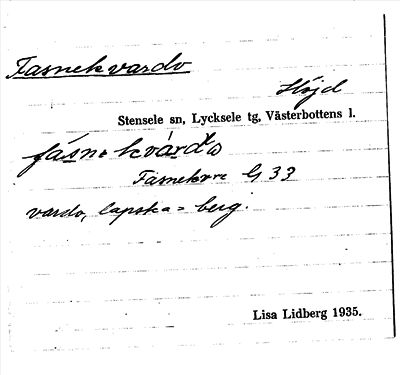 Fasnekvardo
Höjd
Stensele sn, Lycksele tg, Västerbottens l.
G 33
vardo, lapska = berg.
Lisa Lidberg 1935.